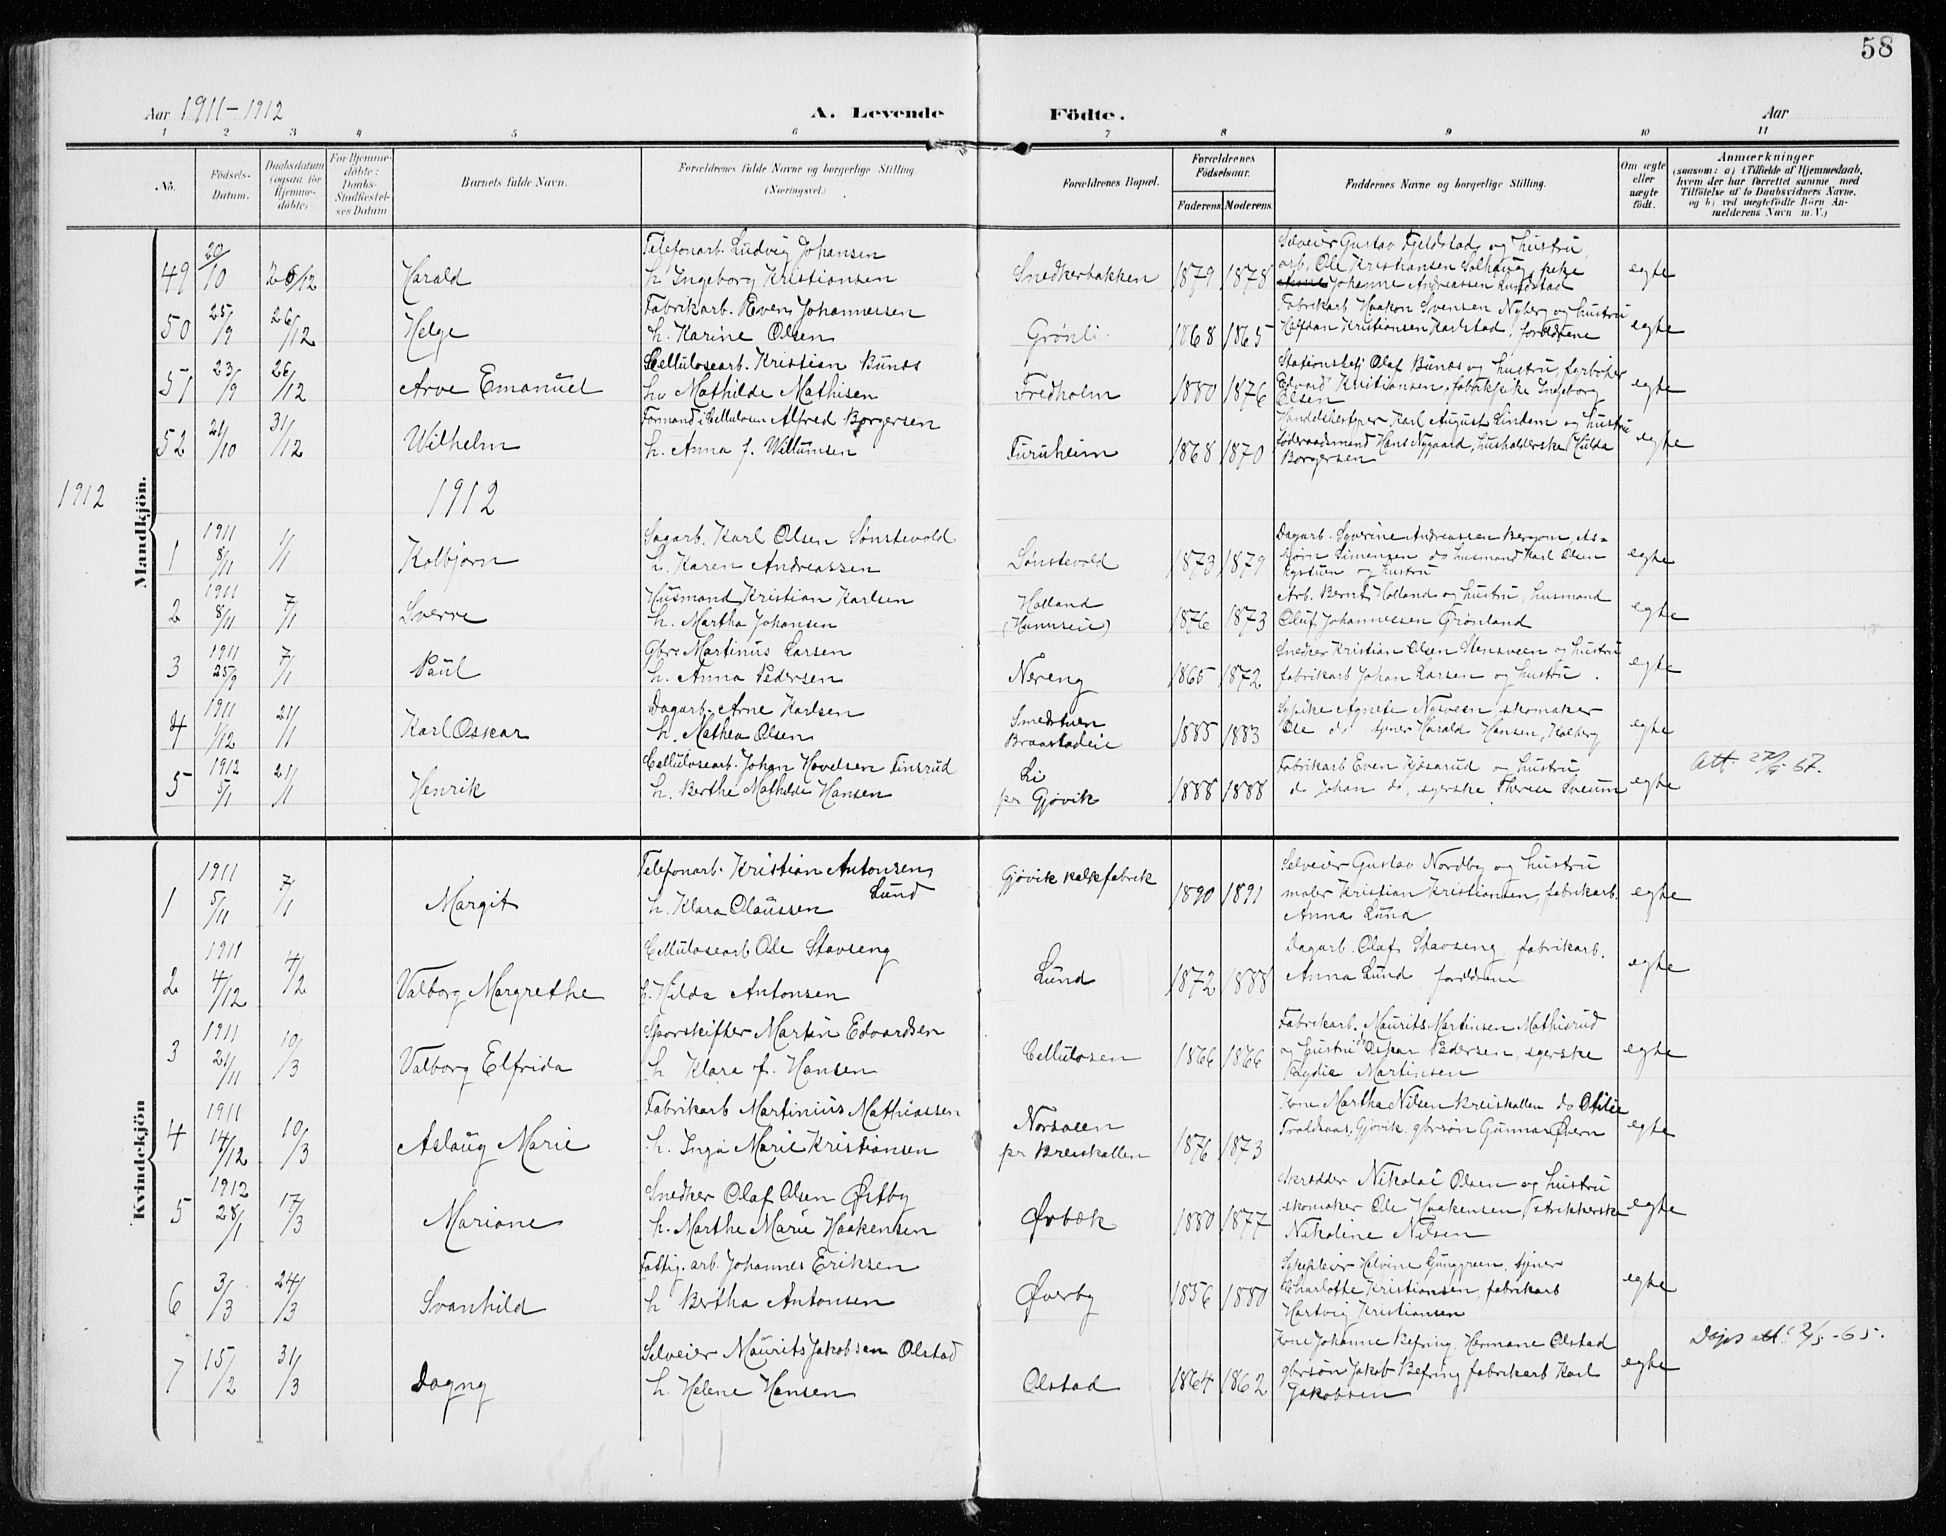 58
Aar 1911-1912
A. Levende
Födte.
Aar
1 2 3 4 5 6 7 8 9 10 11
No.
Födsels-Datum.
Daabsdatum (ogsaa for Hjemme-döbte)
For Hjemme-döbte: Daabs-Stadfæstel-ses Datum
Barnets fulde Navn.
Forældrenes fulde Navne og borgerlige Stilling (Næringsvei.)
Forældrenes Bopæl.
Forældrenes Födselsaar.
Faderens. Moderens.
Faddernes Navne og borgerlige Stilling.
Om ægte eller uægte födt.
Anmærkninger
(saasom: a) i Tilfælde af Hjemmedaab, hvem der har forrettet samme med Tilföielse af to Daabsvidners Navne, og b) ved uægtefödte Börn An-melderens Navn m. V.)
Mandkjön.
49 20/10 26/12 Harald
Telefonarb. Ludvig Johansen
h. Ingeborg Kristiansen
Snedkerbakken 1879 1878
Selveier Gustav Fjeldstad og hustru,
arb. Ole Kristiansen Solhaug, pike
Johanne Andreassen Lundstad
egte
50 25/9 26/12 Helge
Fabrikarb. Even Johannessen
h. Karine Olsen
Grønli 1868 1865
Fabrikarb Haakon Svensen Nyberg og hustru
Halfdan Kristiansen Karlstad, forældrene
egte
51 23/9 26/12 Arve Emanuel
Cellulosearb. Kristian Bunds
h. Mathilde Mathisen
Fredholm 1880 1876
Stationsbetj Olaf Bunds og hustru,
Edvard Kristiansen, fabrikpike Ingeborg
Olsen
egte
52 21/10 31/12 Wilhelm
Formand i Cellulosen Alfred Borgersen
h. Anna f. Willumsen
Furuheim 1868 1870
Handelsbestyrer Karl August Lindem og hustru
føderaadsmand Hans Nygaard, husholderske Hulda
Borgersen
egte
1912
1912
1 1911 8/11 1/1 Kolbjørn
Sagarb. Karl Olsen Sønstevold
h. Karen Andreassen
Sønstevold 1873 1879
Dagarb. Syverine Andreassen Bergom, As-
bjørn Simensen do husmand Karl Olsen
og hustru
egte
2 1911 8/11 7/1 Sverre
Husmand Kristian Karlsen
h. Martha Johansen
Holland
(Hunnseie) 1876 1873
Arb. Bernt Holland og hustru, husmand
Oluf Johannessen Grønland
egte
3 1911 25/9 7/1 Paul
Gbr. Martinus Larsen
h. Anna Pedersen
Nereng 1865 1872
Snedker Kristian Olsen Stensveen og hustru
fabrikarb Johan Larsen og hustru.
egte
4 1911 1/12 21/1 Karl Oskar
Dagarb. Arne Karlsen
h. Mathea Olsen
Smedstuen
Braastadeie 1885 1883
Sypike Agnete Nysveen, skomaker
Ole do, tjener Harald Hansen, Kolberg
egte
5 1912 5/1 21/1 Henrik
Cellulosearb. Johan Hovelsen Finsrud
h. Berthe Mathilde Hansen
Li
pr Gjøvik 1888 1888
Fabrikarb Even Kjøsarud og hustru
do Johan do, syerske Therese Sveum
egte
Att 27/9 67.
Kvindekjön
1 1911 5/11 7/1 Margit
Telefonarb. Kristian Antonsen
Lund
h. Klara Olaussen
Gjøvik kalkfabrik 1890 1891
Selveier Gustav Nordby og hustru
maler Kristian Kristiansen, fabrikarb.
Anna Lund
egte
2 1911 4/12 4/2 Valborg Margrethe
Cellulosearb Ole Stavseng
h. Hilda Antonsen
Lund 1872 1888
Dagarb. Olaf Stavseng fabrikarb.
Anna Lund forældrene
egte
3 1911 21/11 10/3 Valborg Elfrida
Sporskifter Martin Edvardsen
h Klara f. Hansen
Cellulosen 1866 1866
Fabrikarb. Maurits Martinsen Mathisrud
og hustru Oskar Pedersen, syerske
Lydia Martinsen
egte
4 1911 14/12 10/3 Aslaug Marie
Fabrikarb Martinius Mathiassen
h. Inga Marie Kristiansen
Norsveen
pr Breiskallen 1876 1873
Kone Martha Nilsen Breiskallen do Otilie
Traldsaas, Gjøvik, gbrsøn Gunnar Øvern
egte
5 1912 28/1 17/3 Marione
Snedker Olaf Olsen Østby
h. Marthe Marie Haakensen
Ørbæk 1880 1877
Skrædder Nikolai Olsen og hustru
skomaker Ole Haakensen strikkerske
Nikoline Nilsen
egte
6 3/3 24/3 Svanhild
Fattig. arb. Johannes Eriksen
h Bertha Antonsen
Øverby 1856 1880
Helvine Gunggreen, tjener
Charlotte Kristiansen, fabrikarb
Hartvig Kristiansen
egte
7 15/2 31/3 Dagny
Selveier Maurits Jakobsen Olstad
h. Helene Hansen
Olstad 1864 1862
Kone Johanne Befring, Hermane Olstad
gbrsøn Jakob Befring fabrikarb Karl
Jakobsen
egte
Dåps att 2/5 -65.